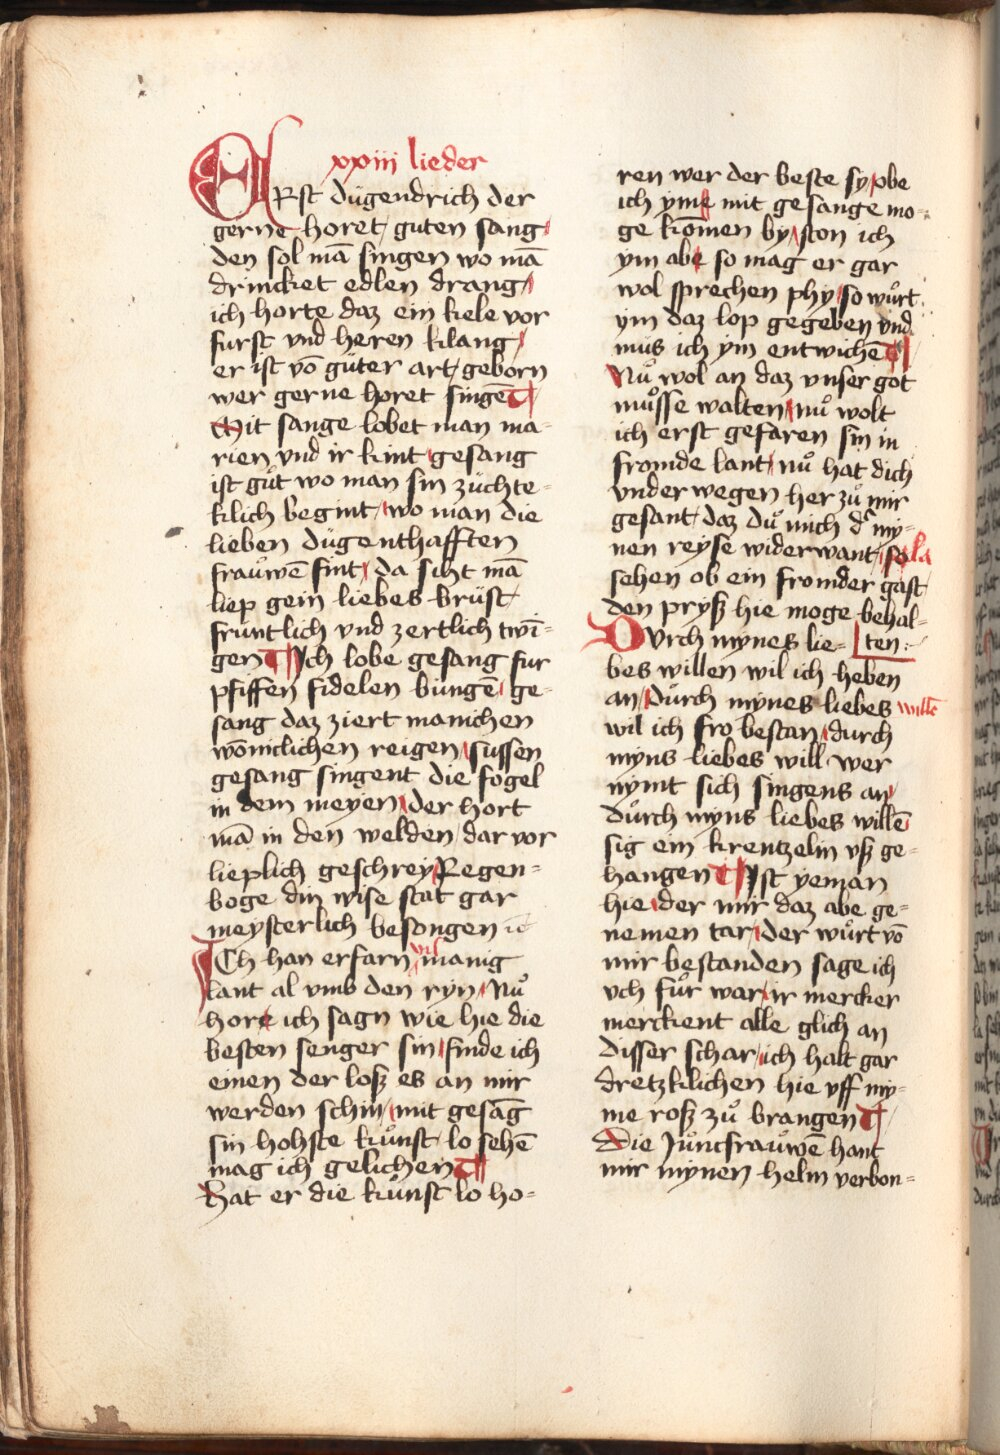 xxiii lieder
ERst dügendrich der
gerne horet / guten sang /
den sol mā singen wo mā
drincket edlen drang /
ich horte daz ein kele vor
furst vnd heren klang /
er ist vō gůter art / geborn
wer gerne horet singē
Mit sange lobet man ma-
rien vnd ir kint / gesang
ist gůt wo man sin züchte-
klich begint / wo man die
lieben dügenthafften
frauwē sint / da siht mā
liep gein liebes brüst /
frůntlich vnd zertlich twī-
gen Ich lobe gesang fur
pfiffen fidelen bungē / ge-
sang daz ziert manichen
wōniclichen reigen / sussen
gesang singent die fogel
in dem meyen / der hort
mā in den welden / dar vor
lieplich geschrey / Regen-
boge din wise stat gar
meysterlich besongen
ICh han erfarn vil manig
lant al vmb den ryn / Nů
hore ich sagn wie hie die
besten senger sin / finde ich
einen der losz es an mir
werden schin / mit gesāg
sin hohste kůnst / lo sehē
mag ich gelichen
Hat er die kůnst lo ho-
ren wer der beste sy / obe
ich yme mit gesange mo-
ge kōmen by / ston ich
ym abe so mag er gar
wol sprechen phy / so wůrt
ym daz lop gegeben vnd
mus ich ym entwichē
Nů wol an daz vnser got
můsse walten / nů wolt
ich erst gefaren sin in
fromde lant / nů hat dich
vnder wegen her zů mir
gesant / daz dů mich d' my-
nen reyse widerwant / so la
sehen ob ein fromder gast
den prysz hie moge behal-
DVrch mynes lie- ten
bes willen wil ich heben
an / Dürch mynes liebes willē
wil ich fro bestan / durch
myns liebes will wer
nymt sich singens an /
dürch myns liebes willē
sig ein krentzelin vsz ge-
hangen Ist yeman
hie / der mir daz abe ge-
nemen tar / der wůrt vō
mir bestanden sage ich
vch fůr war / ir mercker
merckent alle glich an
disser schar / ich halt gar
dretzklichen hie vff my-
me rosz zů brangen
Die Juncfrauwē hant
mir mynen helm verbon-